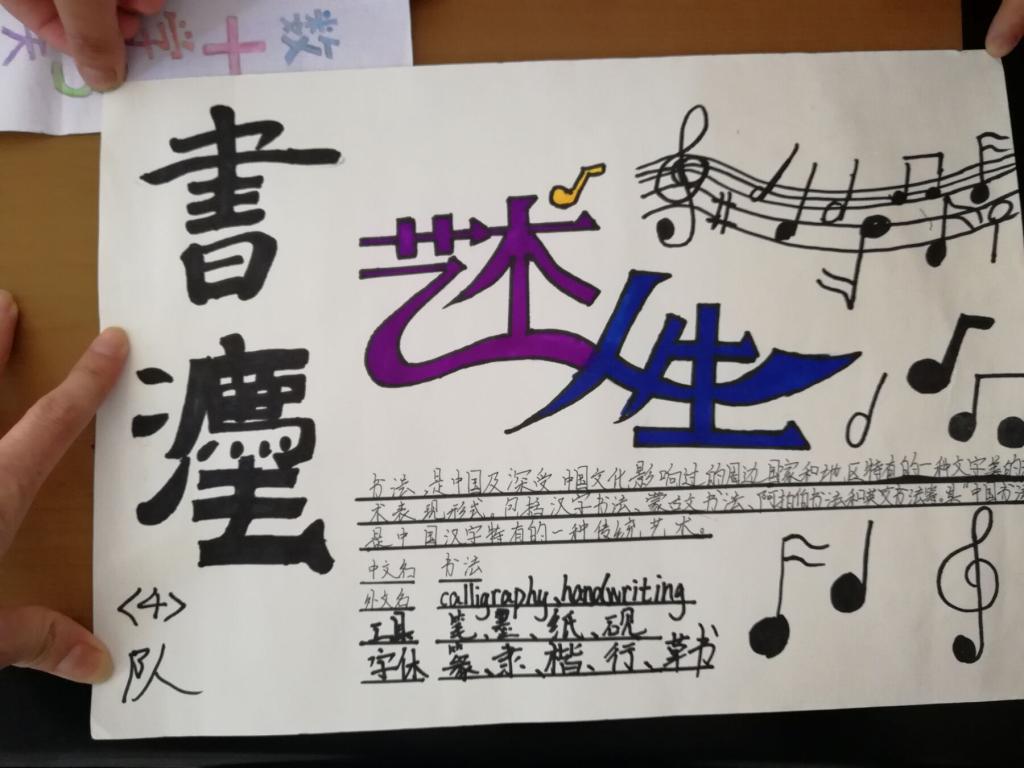 書
灋
<4>
队
艺术人生
书法,是中国及深受中国文化影响过的周边国家和地区特有的一种文字美的
术表现形式。包括汉字书法、蒙古文书法、阿拉伯书法和英文书法等。其“中国书法
是中国汉字特有的一种传统艺术。
中文名 书法
外文名 calligraphy、handwriting
工具 笔、墨、纸、砚
字体 篆、隶、楷、行、草书
数十字